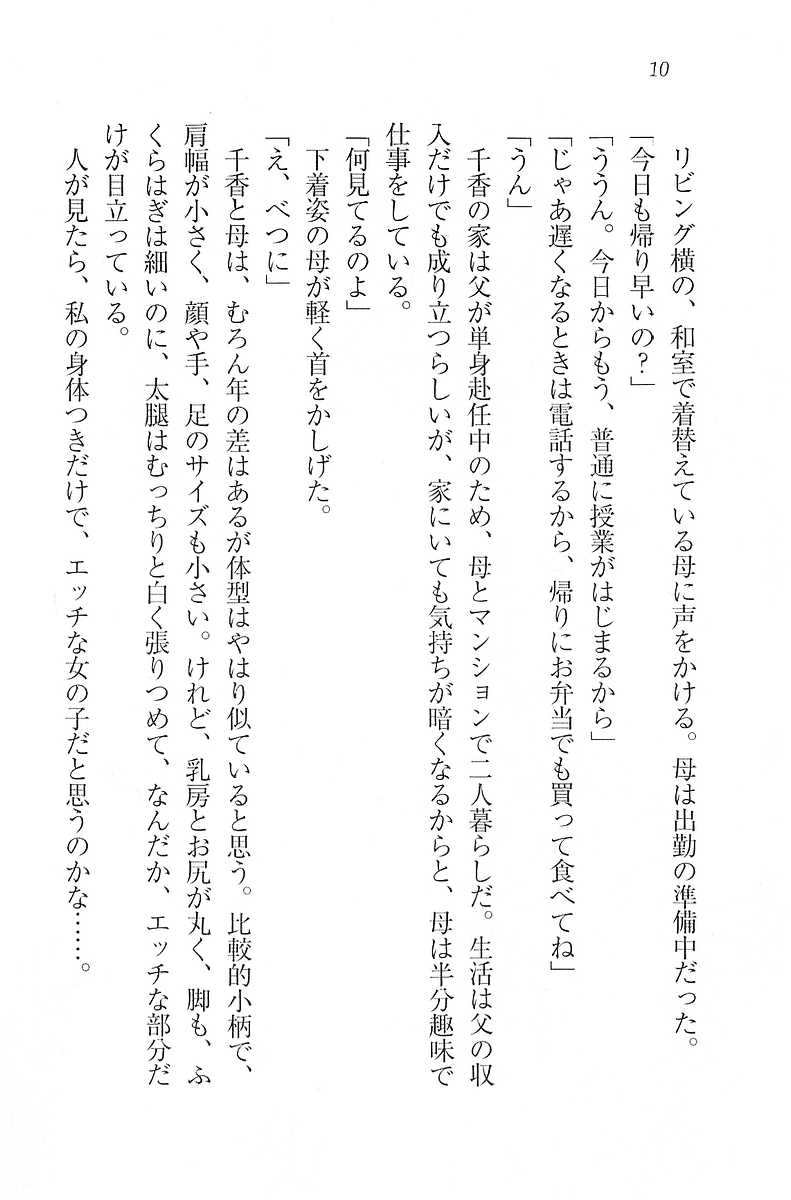 10
リビング横の、和室で着替えている母に声をかける。母は出勤の準備中だった。
「今日も帰り早いの？」
「ううん。今日からもう、普通に授業がはじまるから」
「じゃあ遅くなるときは電話するから、帰りにお弁当でも買って食べてね」
「うん」
千香の家は父が単身赴任中のため、母とマンションで二人暮らしだ。生活は父の収
入だけでも成り立つらしいが、家にいても気持ちが暗くなるからと、母は半分趣味で
仕事をしている。
「何見てるのよ」
下着姿の母が軽く首をかしげた。
「え、べつに」
千香と母は、むろん年の差はあるが体型はやはり似ていると思う。比較的小柄で、
肩幅が小さく、顔や手、足のサイズも小さい。けれど、乳房とお尻が丸く、脚も、ふ
くらはぎは細いのに、太腿はむっちりと白く張りつめて、なんだか、エッチな部分だ
けが目立っている。
人が見たら、私の身体つきだけで、エッチな女の子だと思うのかな……。